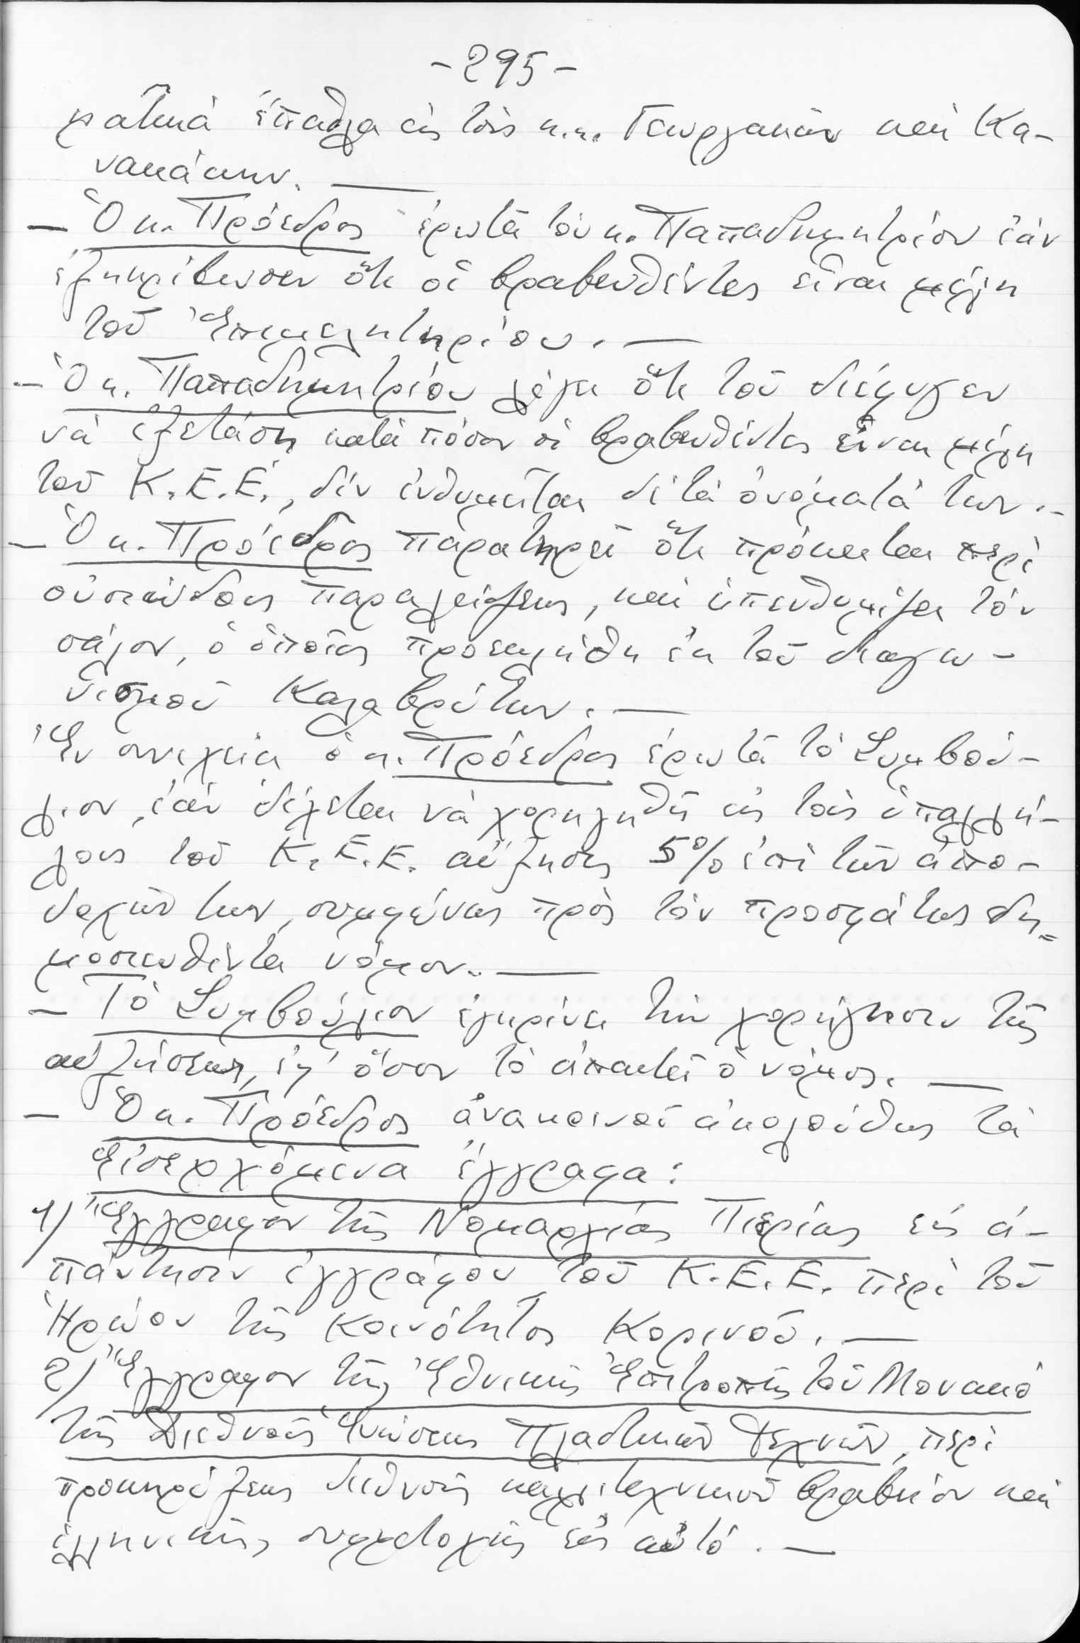 -295-
ματικά ἔπαθλα εἰς τούς κ.κ. Γεωργακᾶν καί Κα-
νακάκην. —
— Ὁ κ. Πρόεδρος ἐρωτᾶ τόν κ. Παπαδημητρίου ἐάν
ἐξηκρίβωσεν ὅτι οἱ βραβευθέντες εἶναι μέλη
τοῦ Ἐπιμελητηρίου. —
— Ὁ κ. Παπαδημητρίου λέγει ὅτι τοῦ διέφυγεν
νά ἐξετάσῃ κατά πόσον οἱ βραβευθέντες εἶναι μέλη
τοῦ Κ.Ε.Ε., δέν ἐνθυμεῖται δέ τά ὀνόματά των. -
— Ὁ κ. Πρόεδρος παρατηρεῖ ὅτι πρόκειται περί
οὐσιώδους παραλείψεως, καί ὑπενθυμίζει τόν
σάλον, ὁ ὁποῖος προεκλήθη ἐκ τοῦ διαγω-
νισμοῦ Καλαβρύτων. —
Ἐν συνεχείᾳ ὁ κ. Πρόεδρος ἐρωτᾶ τό Συμβού-
λιον, ἐάν δέχεται νά χορηγηθῇ εἰς τούς ὑπαλλή-
λους τοῦ Κ.Ε.Ε. αὔξησις 5% ἐπί τῶν ἀπο-
δοχῶν των, συμφώνως πρός τόν προσφάτως δη=
μοσιευθέντα νόμον. —
— Τό Συμβούλιον ἐγκρίνει τήν χορήγησιν τῆς
αὐξήσεως, ἐφ' ὅσον τό ἀπαιτεῖ ὁ νόμος. —
— Ὁ κ. Πρόεδρος ἀνακοινοῖ ἀκολούθως τά
Εἰσερχόμενα ἔγγραφα:
1) Ἔγγραφον τῆς Νομαρχίας Πιερίας εἰς ἀ-
πάντησιν ἐγγράφου τοῦ Κ.Ε.Ε. περί τοῦ
Ἡρώου τῆς Κοινότητος Κορινοῦ. —
2) Ἔγγραφον τῆς Ἐθνικῆς Ἐπιτροπῆς τοῦ Μονακό
τῆς Διεθνοῦς Ἑνώσεως Πλαστικῶν Τεχνῶν, περί
προκηρύξεως διεθνοῦς καλλιτεχνικοῦ βραβείου καί
ἑλληνικῆς συμμετοχῆς εἰς αὐτό. —